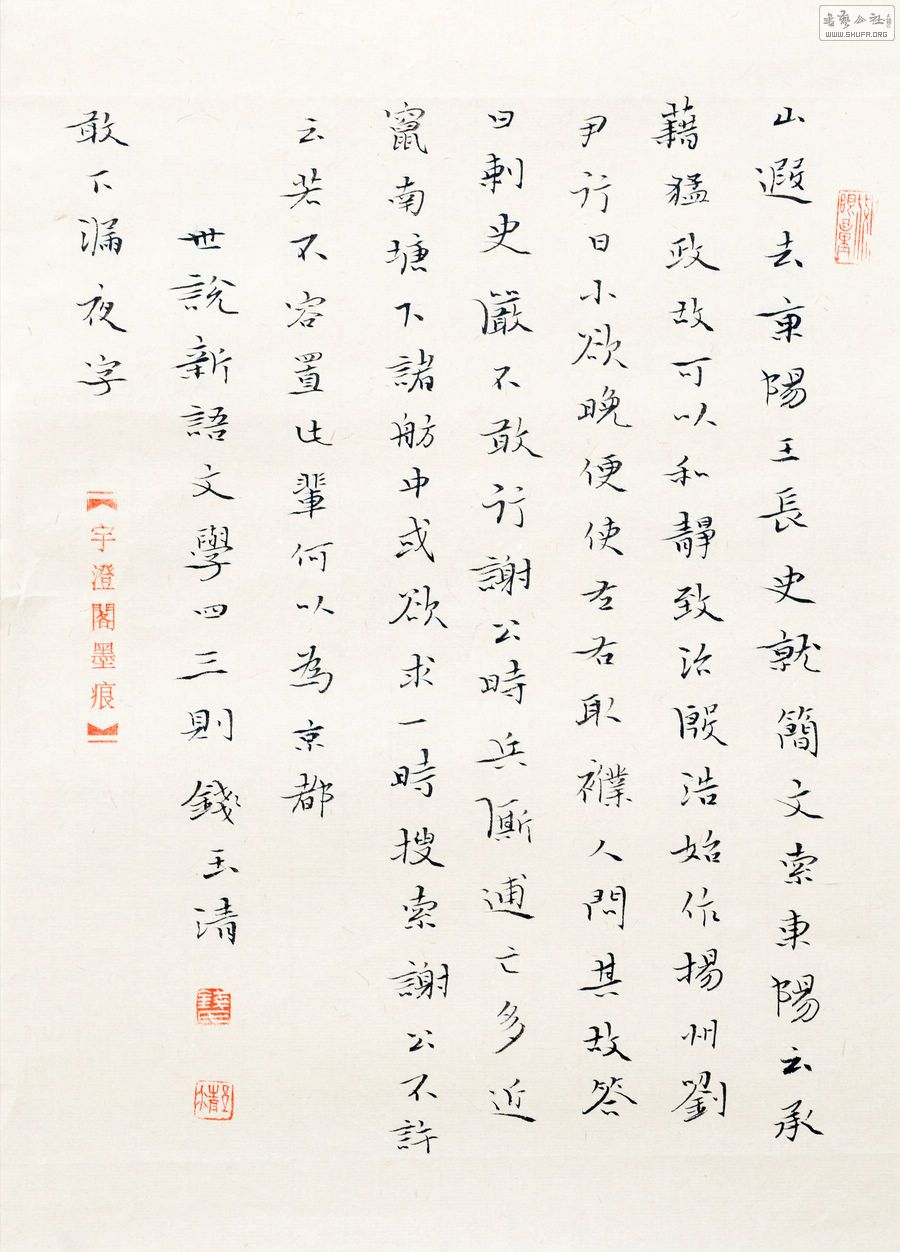 山遐去東陽王長史就簡文索東陽云承
藉猛政故可以和靜致治殷浩始作揚州劉
尹行日小欲晚便使左右取襆人問其故答
曰刺史嚴不敢行謝公時兵廝逋亡多近
竄南塘下諸舫中或欲求一時搜索謝公不許
云若不容置此輩何以為京都
世說新語文學四三則 錢玉清
敢下漏夜字
【宇澄閣墨痕】
書藝公社
WWW.SHUFA.ORG